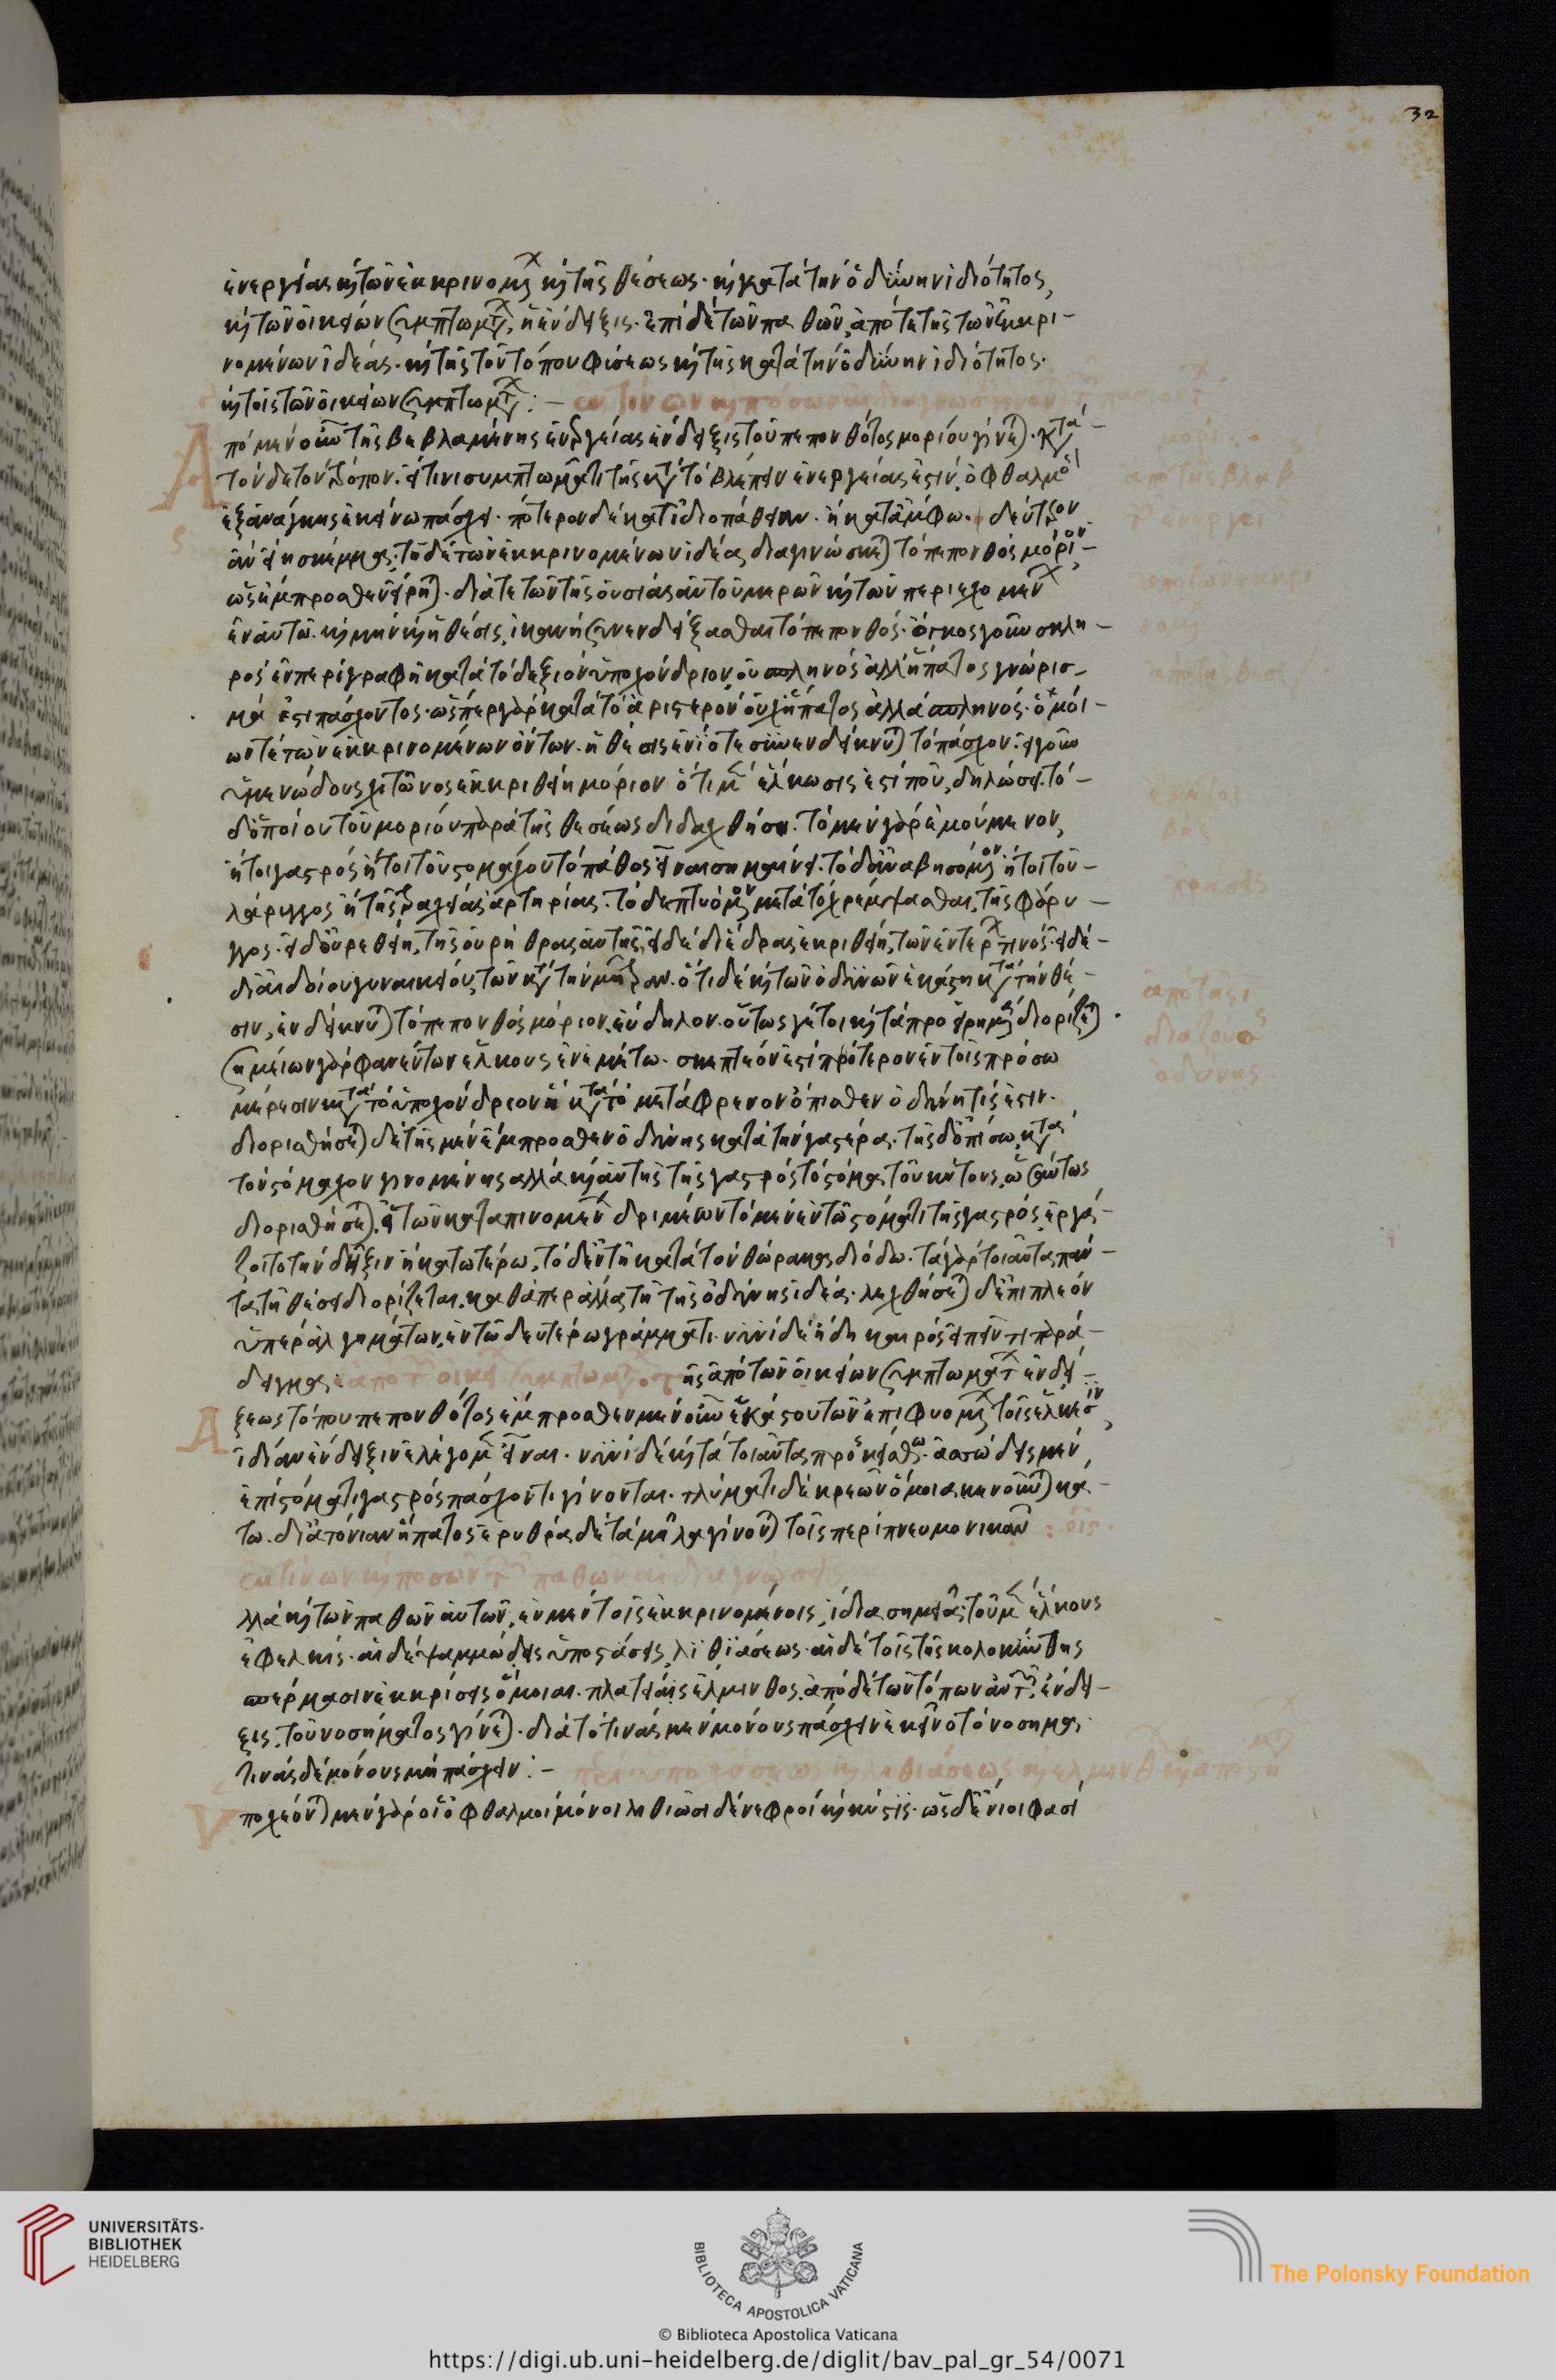 ἐνεργείας καὶ τῶν ἐκκρινομένων καὶ τῆς θέσεως· καὶ κατὰ τὴν ὀδύνην ἰδιότητος,
καὶ τῶν οἰκείων συμπτωμάτων, ἡ ἔνδειξις· ἐπὶ δὲ τῶν παθῶν, ἀπό τε τῆς τῶν ἐκκρι-
νομένων ἰδέας· καὶ τῆς τοῦ τόπου φύσεως καὶ τῆς κατὰ τὴν ὀδύνην ἰδιότητος·
καὶ τοῖς τῶν οἰκείων συμπτωμάτων:-
Ἀπὸ μὲν οὖν τῆς βεβλαμένης ἐνεργείας ἔνδειξις τοῦ πεπονθότος μορίου γίνεται· κατὰ
τόνδε τὸν τρόπον· εἴ τινι συμπτώματι τῆς κατὰ τὸ βλέπειν ἐνεργείας ἐστὶν, ὀφθαλμὸ
ἐξ ἀνάγκης ἐκείνω πάσχει· πότερον δὲ κατ' ἰδιοπάθειαν· ἢ κατ' ἄμφω· δεύτερον
ἂν εἴη σκέμμα· τῇ δὲ τῶν ἐκκρινομένων ἰδέα διαγινώσκεται τὸ πεπονθὸς μόριον
ὡς ἔμπροσθεν εἴρηται· διά τε τῶν τῆς οὐσίας αὐτοῦ μερῶν καὶ τῶν περιεχομένων
ἐν αὐτῶ· καὶ μὴν καὶ ἡ θέσις, ἱκανὴ συνενδείξασθαι τὸ πεπονθός· ὄγκος γοῦν σκλη-
ρὸς ἐν περιγραφῆ κατὰ τὸ δεξιὸν ὑποχόνδριον, οὐ σπληνὸς ἀλλ' ἥπατος γνώρισ-
μά ἐστι πάσχοντος· ὥσπερ γὰρ κατὰ τὸ ἀριστερὸν οὐχ ἥπατος ἀλλὰ σπληνός· ὁμοί-
ων τε τῶν ἐκκρινομένων ὄντων· ἡ θέσις ἐνίοτε συνενδείκνυται τὸ πάσχον· εἰ γοῦν
ὑμενώδους χιτῶνος ἐκκριθείη μόριον ὅτι μὲν ἕλκωσις ἐστί που, δηλώσει· τὸ
δ' ὁποίου τοῦ μορίου παρὰ τῆς θέσεως διδαχθήση· τὸ μὲν γὰρ ἐμούμενον,
ἤτοι γαστρὸς ἢ τοι τοῦ στομάχου τὸ πάθος εἶναι σημαίνει· τὸ δ' ἀναβησόμενον ἤτοι τοῦ
λάρυγγος ἢ τῆς τραχείας ἀρτηρίας· τὸ δὲ πτυόμενον μετὰ τὸ χρέμψασθαι, τῆς φάρυ-
γγος· εἰ δ' οὐρεθείη, τῆς οὐρήθρας αὐτῆς· εἰ δὲ δι' ἕδρας ἐκκριθείη, τῶν ἐντέρων τινός· εἰ δὲ
δι' αἰδοίου γυναικείου, τῶν κατὰ τὴν μήτραν· ὅτι δὲ καὶ τῶν ὀδυνῶν ἑκάστη κατὰ τὴν θέ-
σιν, ἐνδείκνυται τὸ πεπονθὸς μόριον, εὔδηλον· οὕτως γέ τοι καὶ τὰ προειρημένα διορίζεται
σημείων γὰρ φανέντων ἕλκους ἐν ἐμέτω· σκεπτέον ἐστὶ πρότερον ἐν τοῖς πρόσω
μέρεσιν κατὰ τὸ ὑποχόνδριον ἢ κατὰ τὸ μετάφρενον ὄπισθεν ὀδύνη τίς ἐστιν·
διορισθήσεται δὲ τῆς μὲν ἔμπροσθεν ὀδύνης κατὰ τὴν γαστέρα· τῆς δ' ὀπίσω, κατὰ
τὸν στόμαχον γινομένης ἀλλὰ καὶ αὐτῆς τῆς γαστρὸς τὸ στόμα, τοῦ κύτους, ὡσαύτως
διορισθήσεται, εἰ τῶν καταπινομένων δριμέων τὸ μὲν ἐν τῶ στόματι τῆς γαστρὸς ἐργά-
ζοιτο τὴν δῆξιν ἢ κατωτέρω, τὸ δ' ἐν τῆ κατὰ τὸν θώρακα διόδω· τὰ γὰρ τοιαῦτα πάν-
τα τῆ θέσει διορίζεται, καθάπερ ἄλλα τῆ τῆς ὀδύνης ἰδέα· λεχθήσεται δ' ἐπιπλέον
ὑπὲρ ἀλγημάτων, ἐν τῶ δευτέρω γράμματι· νυνὶ δὲ ἤδη καιρὸς εἰπεῖν τι παρά-
δειγμα· τῆς ἀπὸ τῶν οἰκείων συμπτωμάτων ἐνδεί-
ξεως τόπου πεπονθότος ἔμπροσθεν μὲν οὖν ἑκάστου τῶν ἐπιφυομένων τοῖς ἕλκεσιν
ἰδίαν ἔνδειξιν ἐλέγομεν εἶναι· νυνὶ δὲ καὶ τὰ τοιαῦτα προσκείσθω· ἀσώδεις μὲν
ἐπὶ στόματι γαστρὸς πάσχοντι γίνονται· πλύματι δὲ κρεῶν ὅμοια κενοῦνται κά-
τω· δι' ἀτονίαν ἥπατος ἐρυθρὰ δὲ τὰ μῆλα γίνονται τοῖς περιπνευμονικοῖς
ἐκ τίνων καὶ πόσων τῶν παθῶν αἱ διαγνώσεις
λλὰ καὶ τῶν παθῶν αὐτῶν, ἐν μὲν τοῖς ἐκκρινομένοις, ἴδια σημεῖα· τοῦ μὲν ἕλκους
ἐφελκίς· αἱ δὲ ψαμμώδεις ὑποστάσεις, λιθιάσεως· αἱ δὲ τοῖς τῆς κολοκύνθης
σπέρμασιν ἐκκρίσεις ὅμοιαι· πλατείας ἕλμινθος, ἀπὸ δὲ τῶν τόπων αὐτῶν, ἔνδει-
ξις, τοῦ νοσήματος γίνεται· διὰ τὸ τινὰς μὲν μόνους πάσχειν ἐκεῖνο τὸ νόσημα·
τινὰς δὲ μόνους μὴ πάσχειν:-
Ὑποχέονται μὲν γὰρ οἱ ὀφθαλμοὶ μόνοι λιθιῶσι δὲ νεφροὶ καὶ κύστις· ὡς δ' ἔνιοι φασὶ
32
UNIVERSITÄTS-
BIBLIOTHEK
HEIDELBERG
BIBLIOTECA APOSTOLICA VATICANA
The Polonsky Foundation
© Biblioteca Apostolica Vaticana
https://digi.ub.uni-heidelberg.de/diglit/bav_pal_gr_54/0071